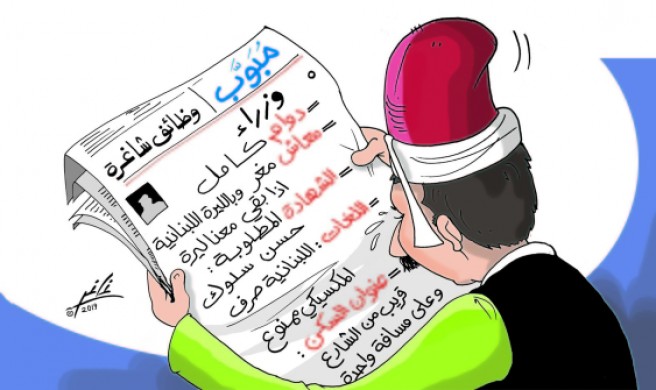 مُبَوَّب
وظائف شاغرة
وزراء
= دوام كامل
= معاش مغرٍ وبالليرة اللبنانية
اذا بقي معنا ليرة
= الشهادة المطلوبة:
حسن سلوك
= اللغات: اللبنانية صرف
المكسيكي ممنوع
= عنوان السكن:
قريب من الشارع
وعلى مسافة واحدة
© 2019